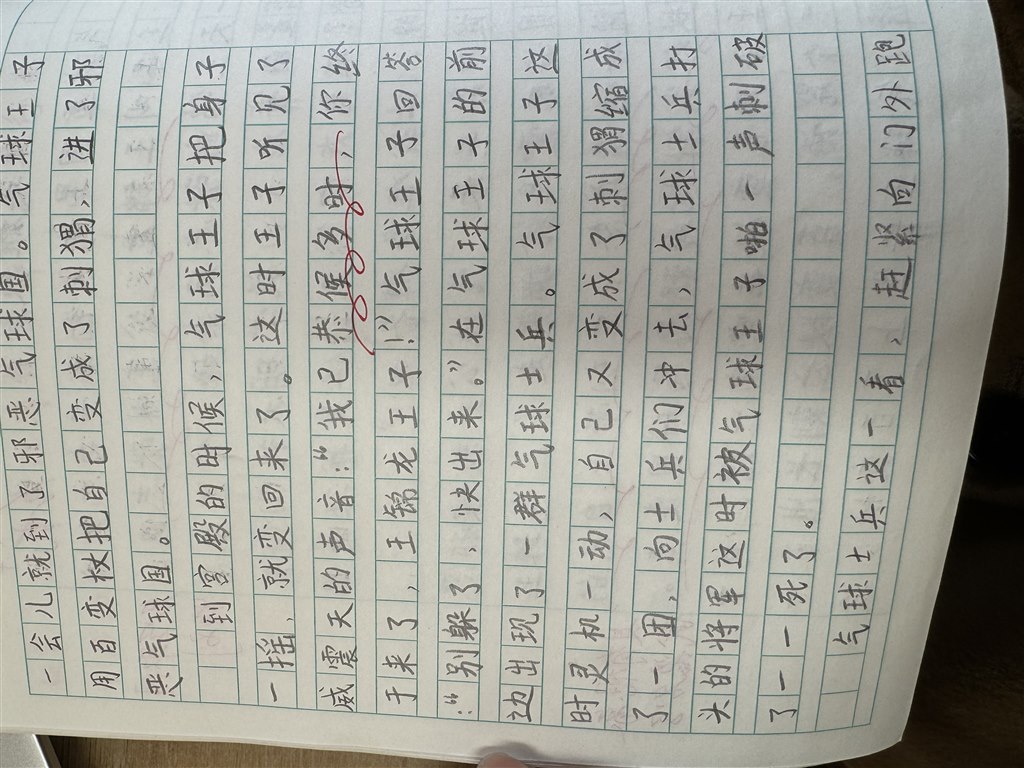 一会儿就到了邪恶气球国。气球王子
用百变杖把自己变成了刺猬，进了邪
恶气球国。
到宫殿的时候，气球王子把身子
一摇，就变回来了。这时王子听见了
威震天的声音：“我已恭候多时，你终
于来了，王锦龙王子！”气球王子回答
：“别躲了，快出来。”在气球王子的前
边出现了一群气球士兵。气球王子这
时灵机一动，自己又变成了刺猬缩成
了一团，向士兵们冲去，气球士兵打
头的将军这时被气球王子啪一声刺破
了——死了。
气球士兵这一看，赶紧向门外跑